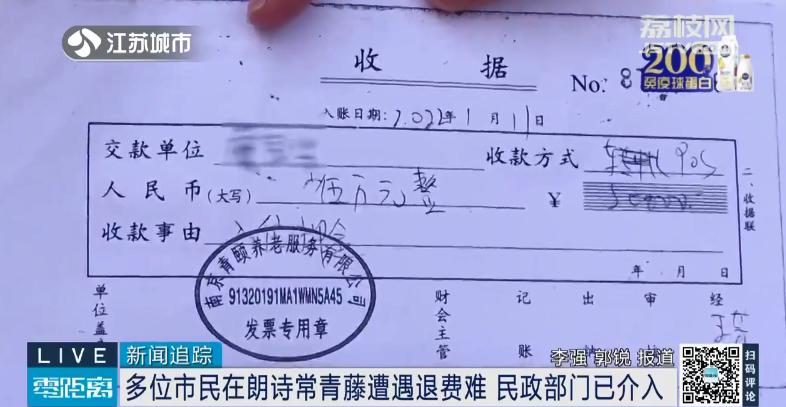 江苏城市
荔枝网
收 据
No: 8
200
免疫球蛋白
入账日期: 2022年1月11日
交款单位
收款方式 POS
人民币(大写) 伍万元整 ¥
收款事由
二、收据联
年 月 日
南京青颐养老服务有限公司
91320191MA1WMN5A45
发票专用章
单位盖
财会主管
记账
出
审
经
LIVE 新闻追踪
李强 郭锐 报道
零距离
多位市民在朗诗常青藤遭遇退费难 民政部门已介入
扫码评论